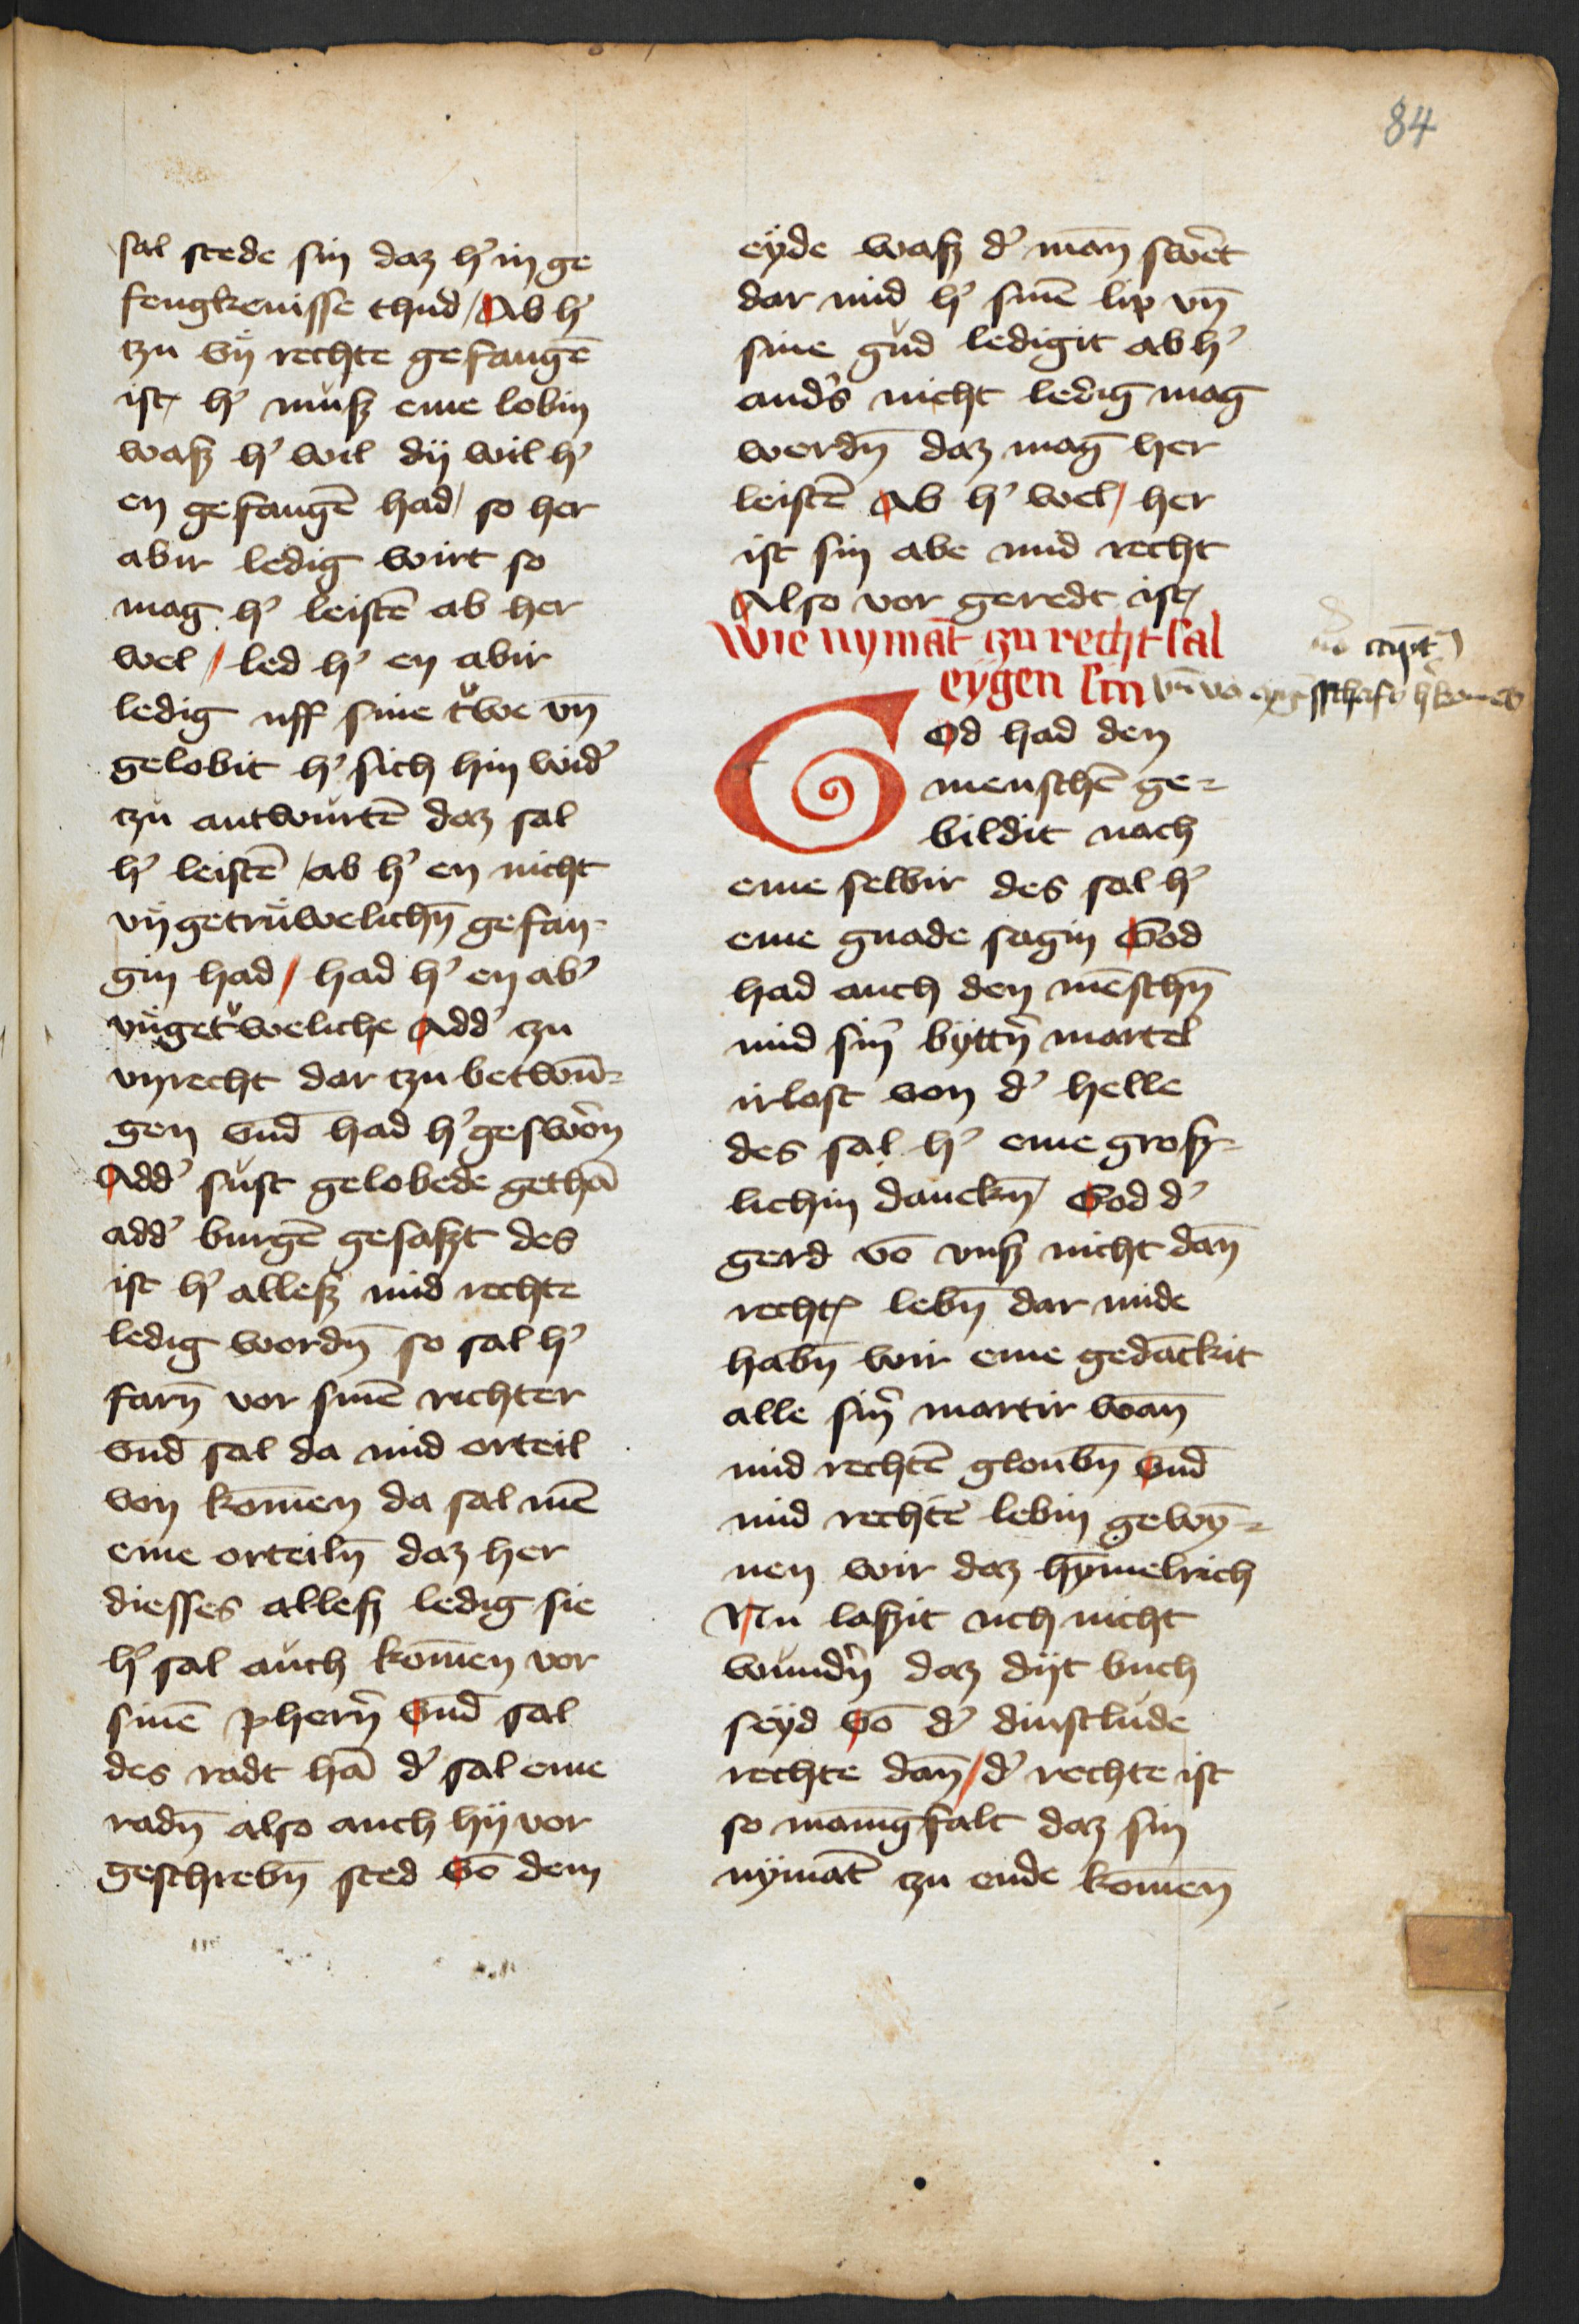 84
sal stede sin daz h' in ge
fengkenisse thud / Ab h'
tzu vn̈ rechte gefangē
ist h' muß eme lobin
waß h' wil dy wil h'
en gefangē had / so her
abir ledig wirt so
mag h' leistē ab her
wel / led h' en abir
ledig uff sine tͮwe vn̄
gelobit h' sich hin wid'
tzu antwurtē daz sal
h' leistē / ab h' en nicht
vn̈getrüwelichn̄ gefan-
gin had / had h' en ab'
vn̈getͮweliche Add' tzu
vnrecht dar tzu betwū-
gen vnd̄ had h' geswor̄n
Add' sust gelobede gethā
add' burgē gesaßt des
ist h' alleß mid rechte
ledig wordn̄ so sal h'
farn̄ vor sinē richter
vnd̄ sal da mid orteil
von kom̄en da sal mē
eme orteiln̄ daz her
diesses alleß ledig sie
h' sal auch kom̄en vor
sinē pherr̄n vnd̄ sal
des radt hā d' sal eme
radn̄ also auch hy vor
geschrebn̄ sted vō dem
eyde waß d' man̄ swēt
dar mid h' sinē lip vn̄
sine gud ledigit ab h'
and's nicht ledig mag
werdn̄ daz mag her
leistē Ab h' wel / her
ist sin abe mid recht
Also vor geredt ist
Wie nymāt zu recht sal
eygen sin
God had den
menschē ge-
bildit nach
eme selbir des sal h'
eme gnade sagin God
had auch den mēschn̄
mid sin' bÿttn' martel
irlost von d' helle
des sal h' eme groß-
lichin danckn̄ God d'
gerd vō vnß nicht dan̄
recht' lebn̄ dar mide
habn̄ wir eme gedāckit
alle sin' martir wan̄
mid rechtē gloubn̄ vnd̄
mid rechtē lebin gewȳ-
nen wir daz hȳmelrich
Nu laßit uch nicht
wundn' daz dÿt buch
seÿd vō d' dinstlude
rechte dan̄ / d' rechte ist
so manigfalt daz sin
nÿmāt tzu ende kom̄en̄